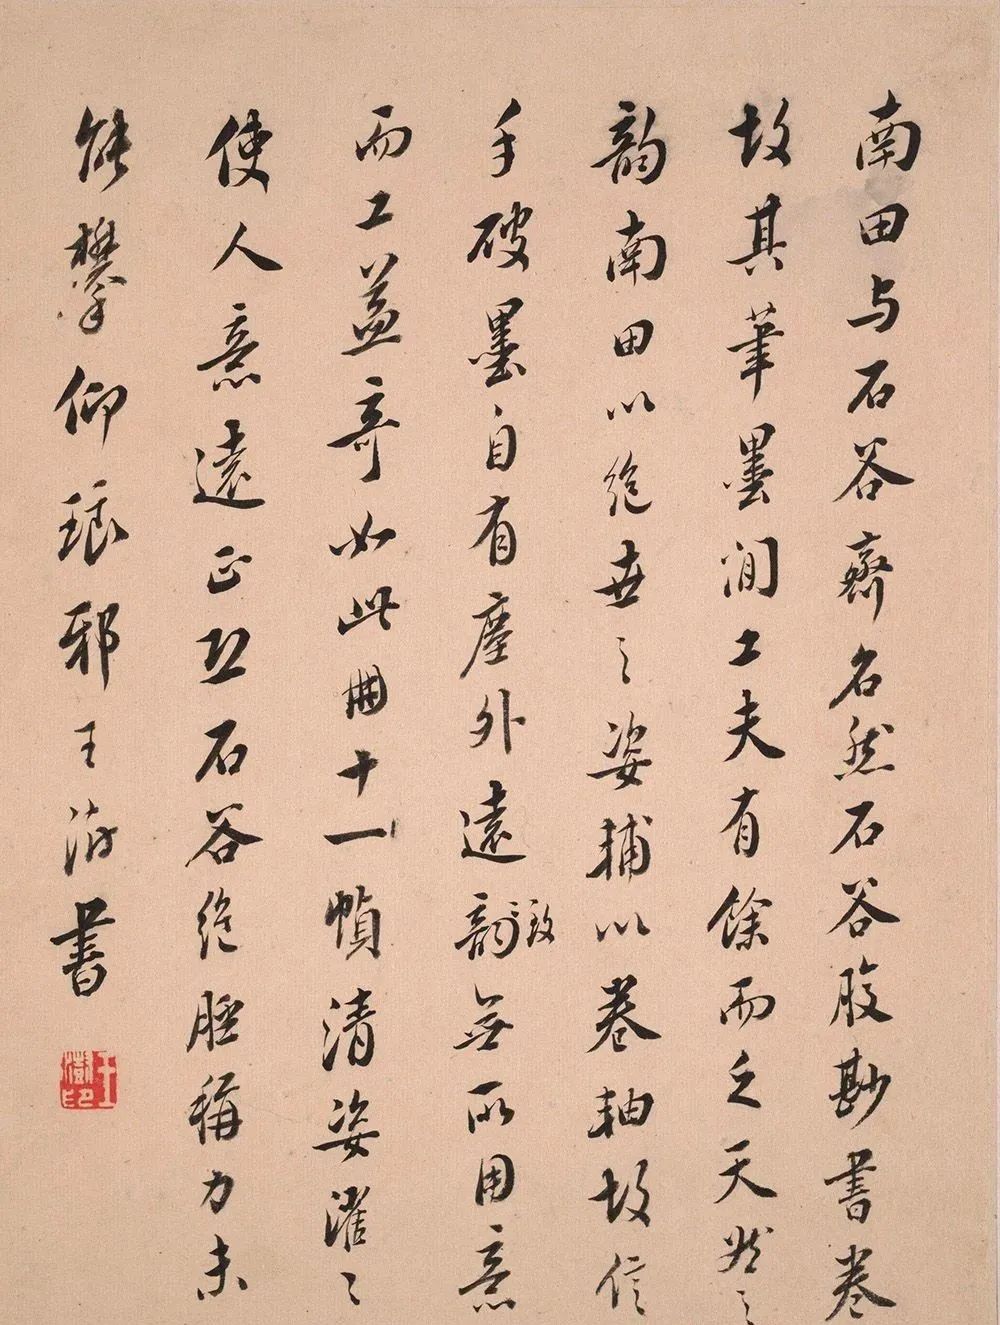 南田与石谷齊名然石谷腹尠書卷
故其筆墨間工夫有餘而乏天然之
韵南田以絕世之姿輔以卷軸故信
手破墨自有塵外遠韵致無所用意
而工益奇如此冊十一幀清姿濯〻
使人意遠正恐石谷絕脰稱力未
能攀仰琅邪王澍書
王澍印